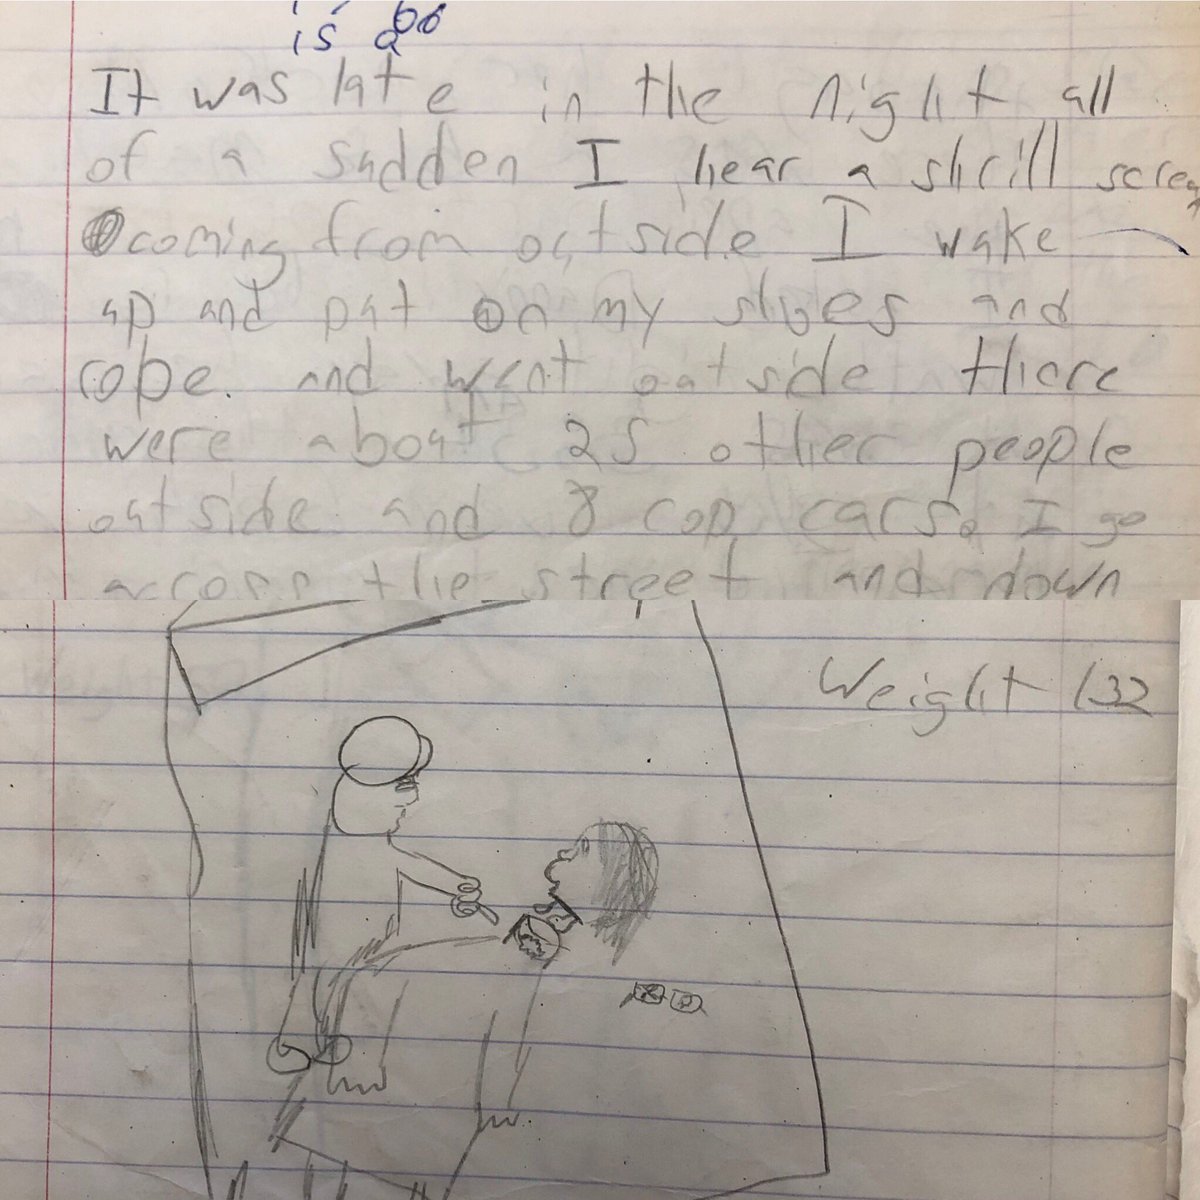 is a
It was late in the night all
of a sudden I hear a shrill screa
coming from outside I wake
up and put on my shoes and
robe. and went outside there
were about 25 other people
outside and 8 cop cars. I go
across the street and down
Weight 132